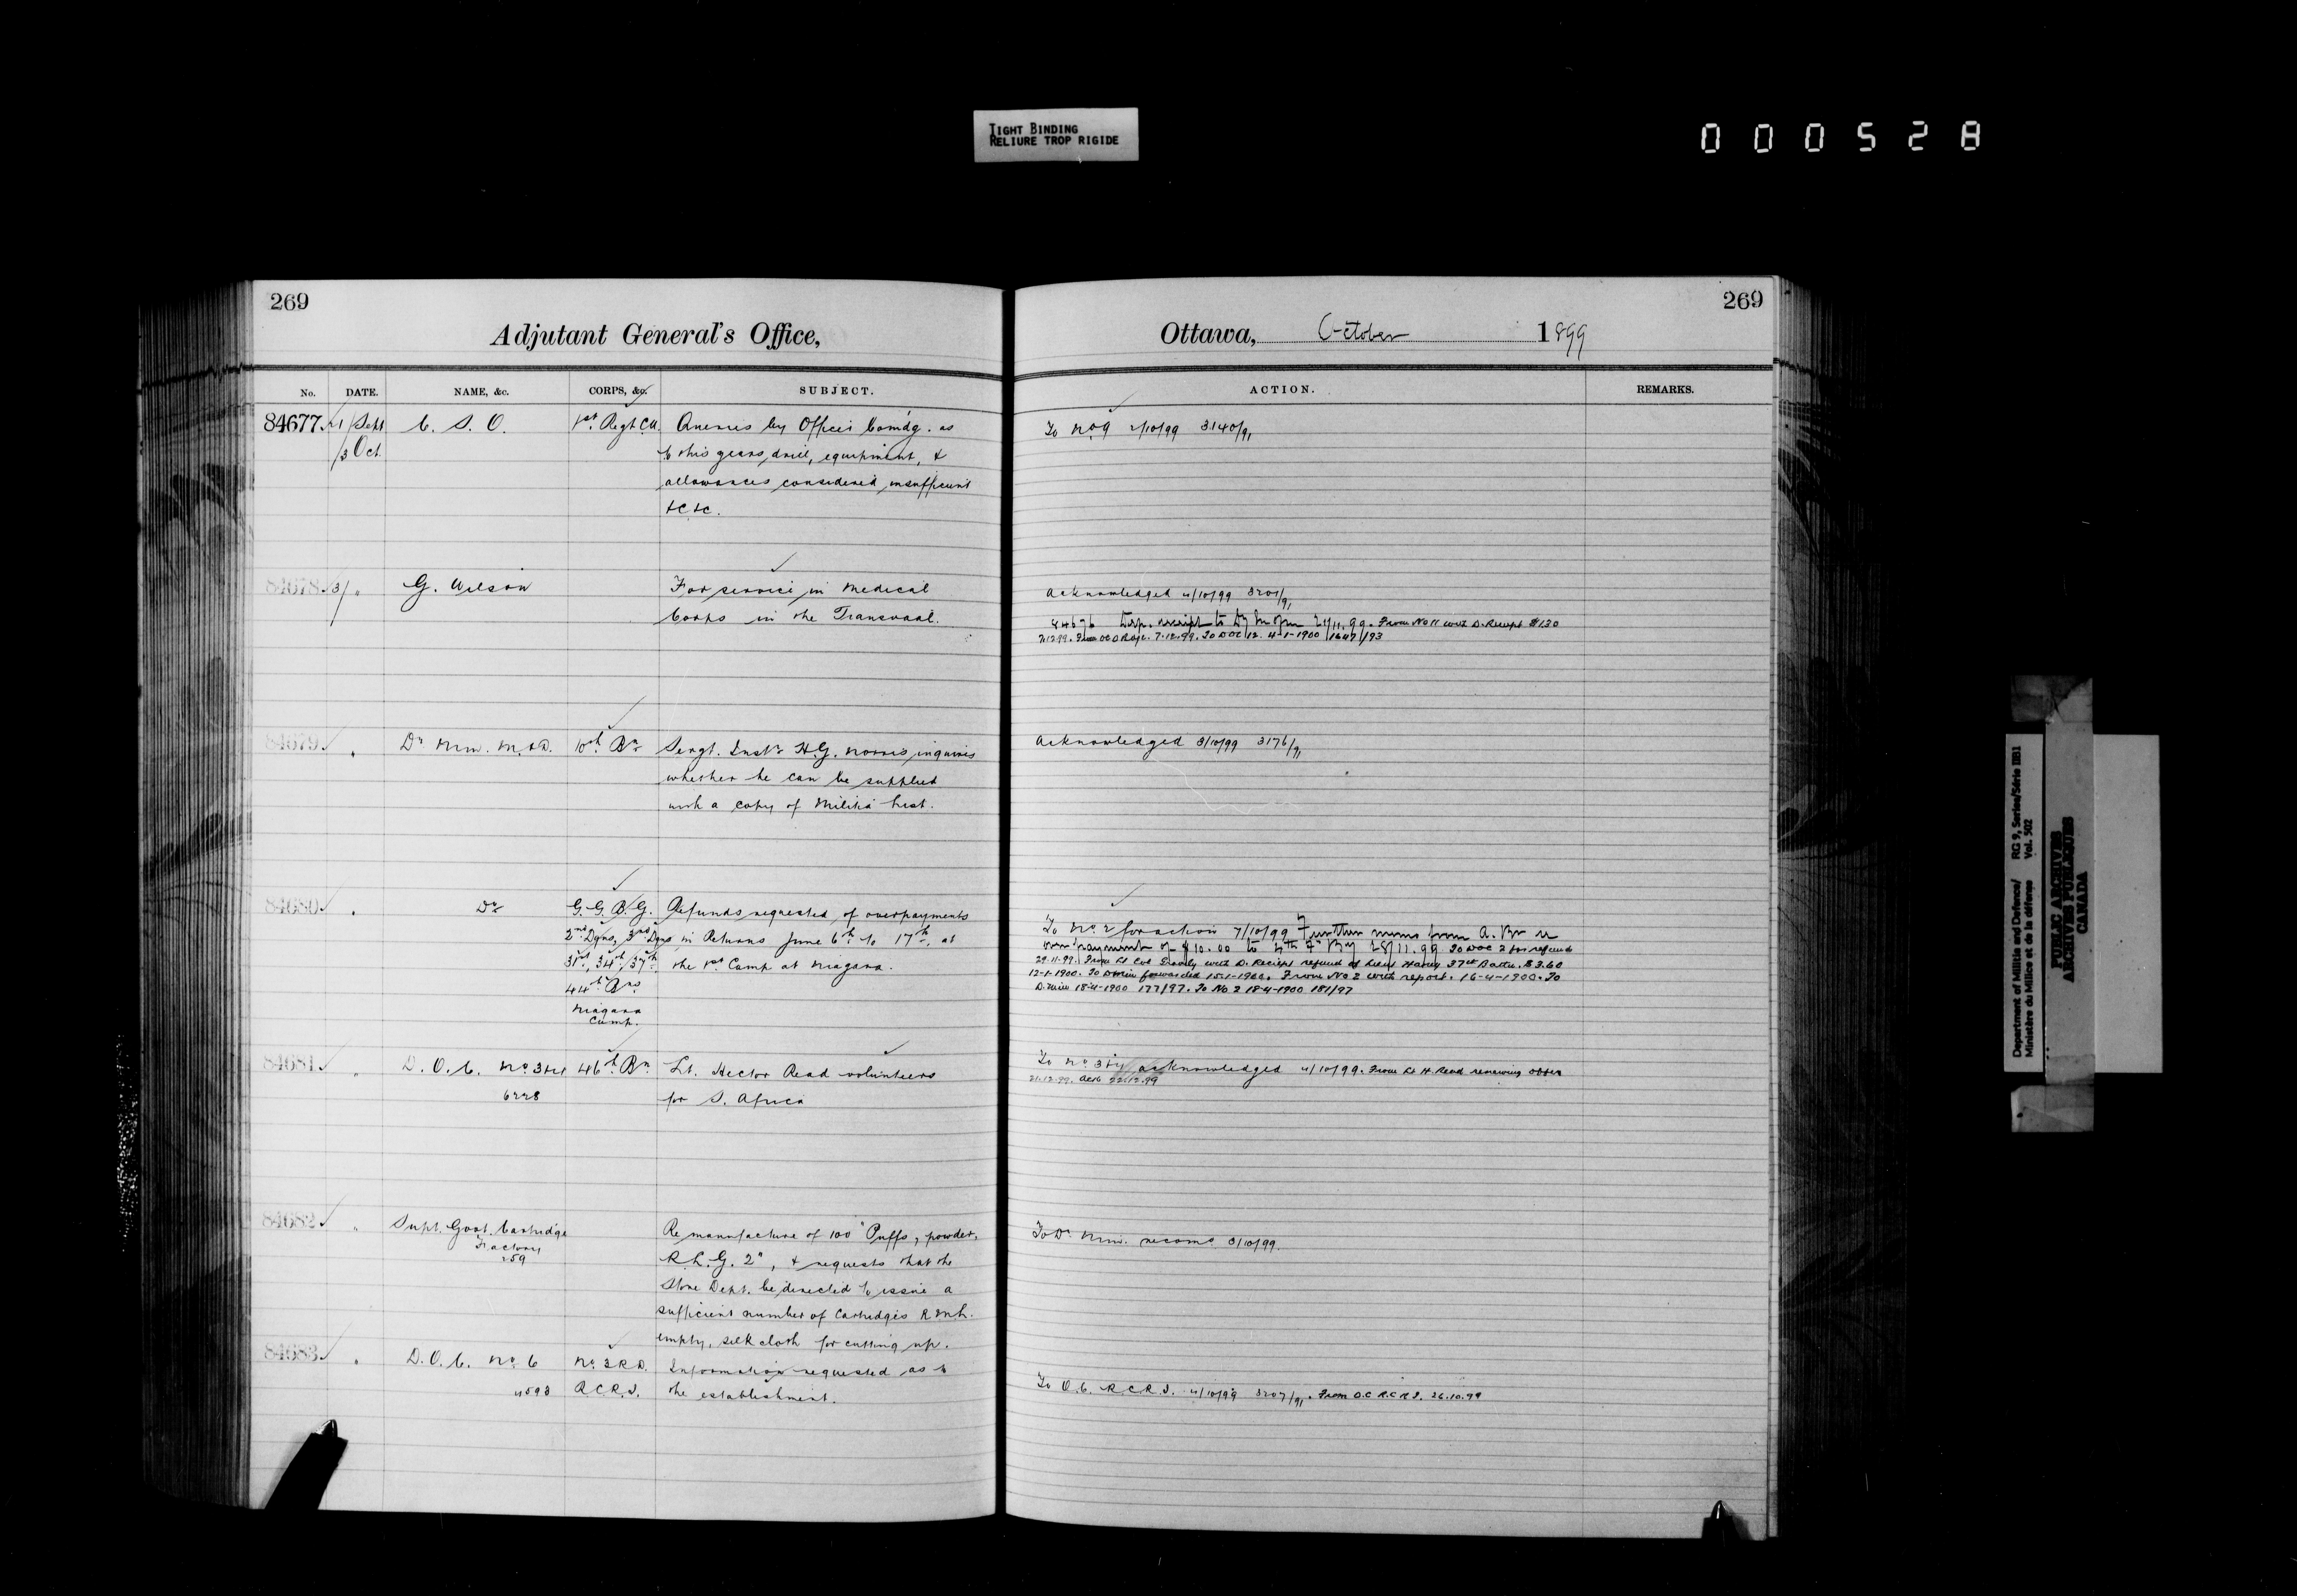 TIGHT BINDING
RELIURE TROP RIGIDE
000528
269
Adjutant General's Office,
No. DATE. NAME, &c. CORPS, &c. SUBJECT.
84677 21/Sept C. S. O. 1st Regt C.A. Queries by Officer Comdg. as
/3 Oct. to this years drill, equipment, &
allowances considered insufficient
&c &c.
84678 3/ " G. Wilson For service in Medical
Corps in the Transvaal.
84679 " Dy Min. M.&D. 10th Bn Sergt. Instr H.G. Norris inquires
whether he can be supplied
with a copy of Militia List.
84680 " Do G.G.B.G. Refunds requested of overpayments
2nd Dgns, 3rd Dgns in Returns June 6th to 17th, at
31st, 34th, 37th the 1st Camp at Niagara.
44th Bns
Niagara
Camp.
84681 " D.O.C. No 3&4 46th Bn Lt. Hector Read volunteers
6228 for S. Africa
84682 " Supt. Govt. Cartridge Re manufacture of 100 "Puffs, powder,
Factory R.L.G. 2", & requests that the
259 Store Dept. be directed to issue a
sufficient number of Cartridges R.M.L.
empty, silk cloth for cutting up.
84683 " D.O.C. No 6 No. 3 R.D. Information requested as to
4593 R.C.R.I. the establishment.
269
Ottawa, October 1899
ACTION. REMARKS.
To No 9 2/10/99 3140/91
Acknowledged 4/10/99 3201/91
84676 Dep. receipt to Dy 21/11.99. From No 11 with D. Receipt $1.30
7.12.99. To DOC 12. 4-1-1900 1647/93
Acknowledged 3/10/99 3176/91
To No 2 for action 7/10/99 Further memo from A. Br re
over payment of $10.00 to 4th F. By 28/11.99 To DOC 2 for refund
29-11-99. From Lt Col with D. Receipt refund of Lieut 37th Battn. $3.60
12-1-1900. To D Min forwarded 15-1-1900. From No 2 with report. 16-4-1900. To
D. Min 18-4-1900 177/97. To No 2 18-4-1900 181/97
To No 3&4 acknowledged 4/10/99. From Lt H. Read renewing offer
21.12.99. Ack 22.12.99
To Dy Min. recomd 3/10/99.
To O.C. R.C.R.I. 4/10/99 3207/91. From O.C. R.C.R.I. 26.10.99
Department of Militia and Defence/ RG 9, Series/Série IIB1
Ministère du Milice et de la défense Vol. 502
PUBLIC ARCHIVES
ARCHIVES PUBLIQUES
CANADA